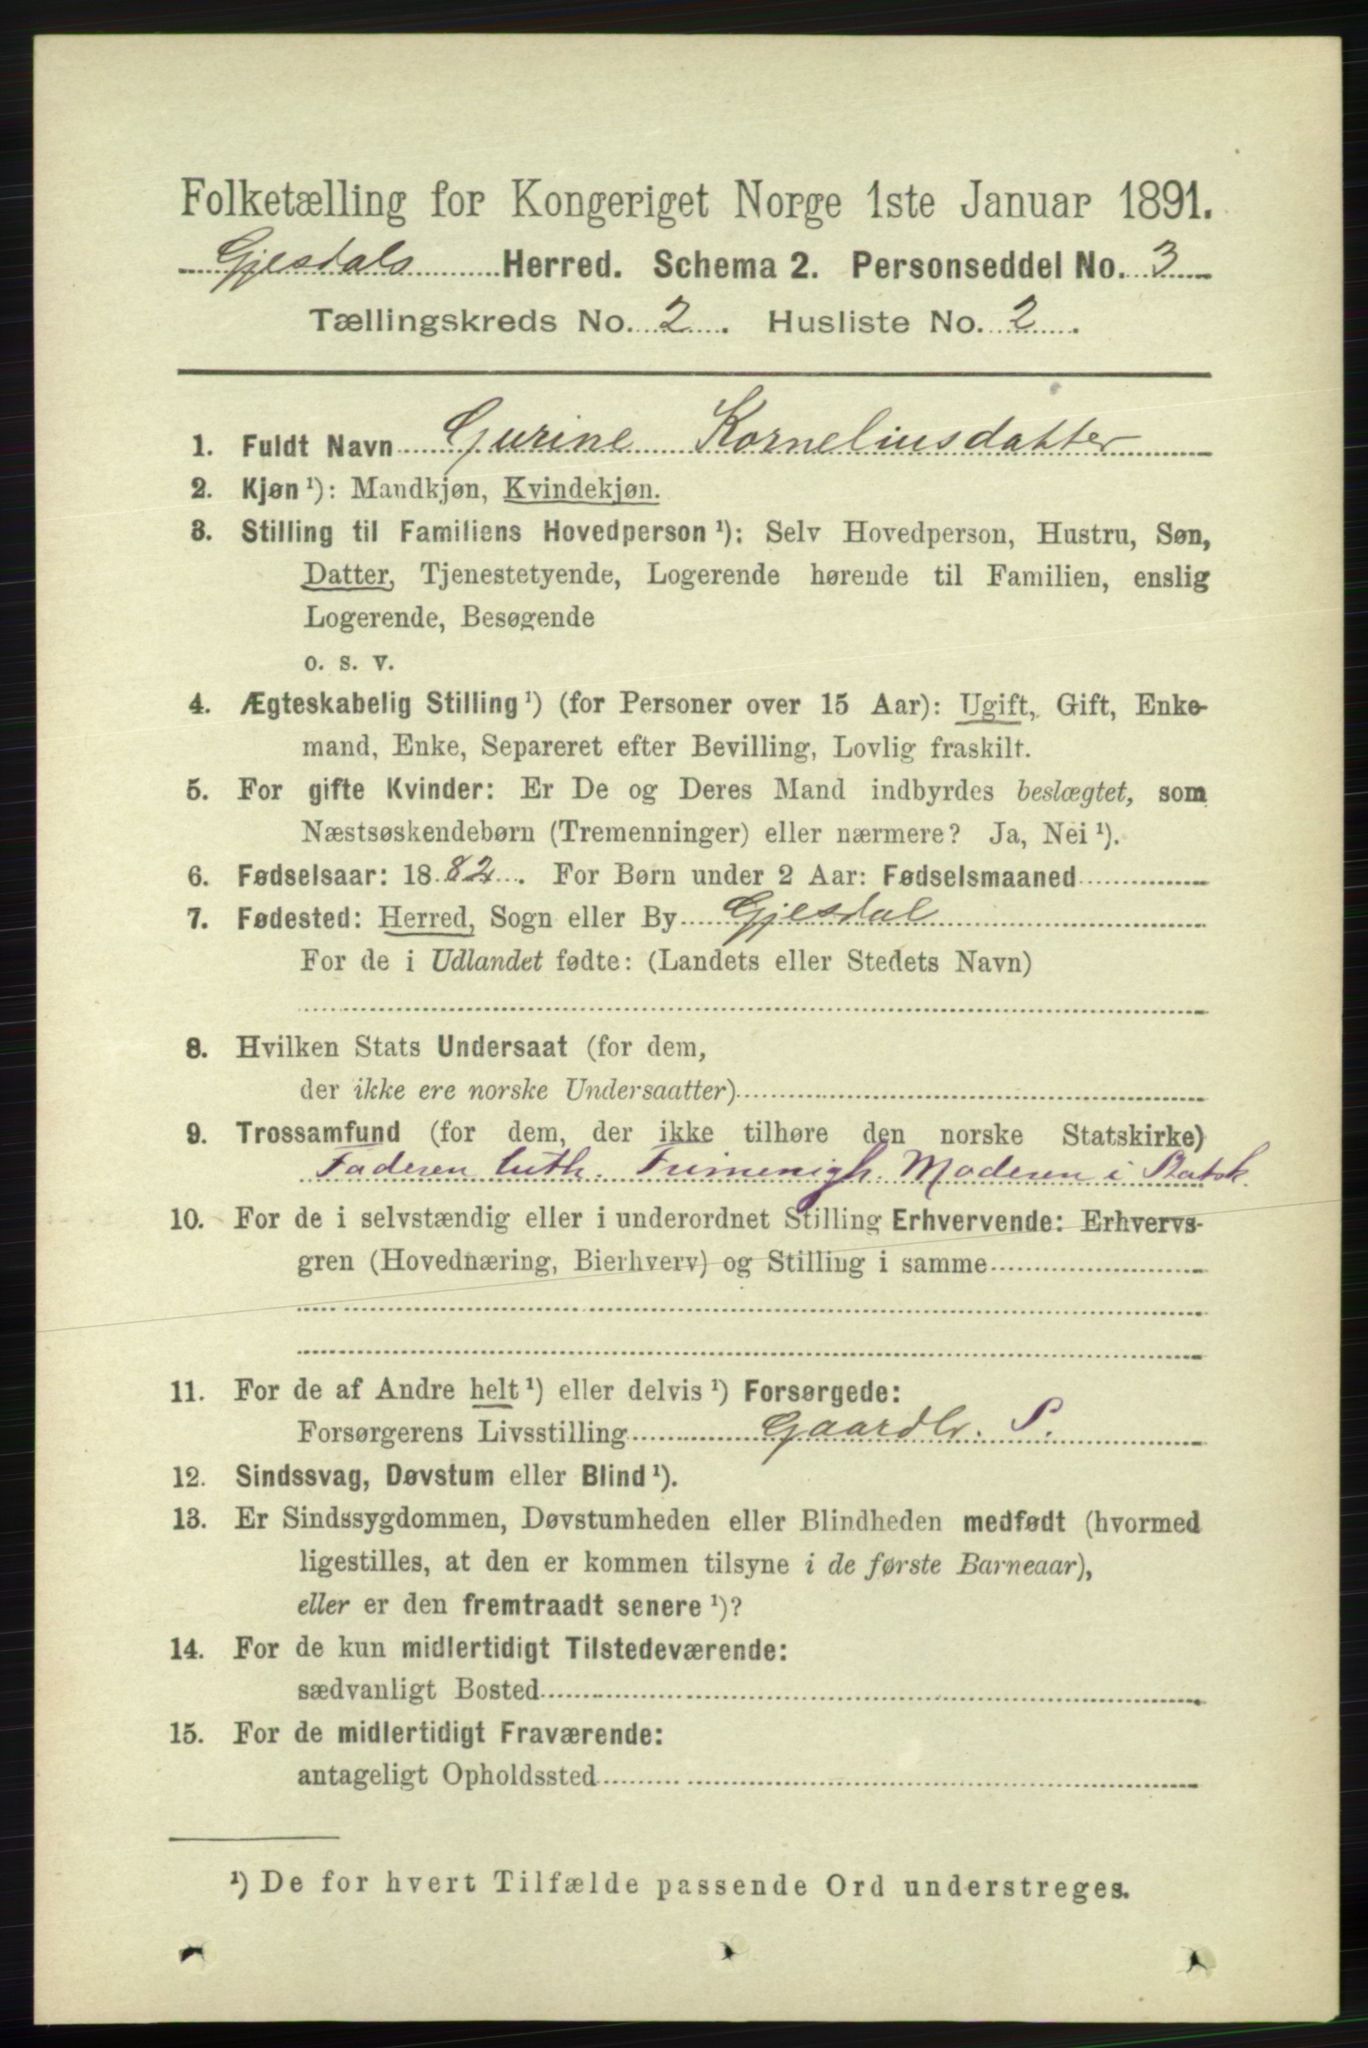 Folketælling for Kongeriget Norge 1ste Januar 1891.
Gjesdals Herred. Schema 2. Personseddel No. 3
Tællingskreds No. 2. Husliste No. 2.
1. Fuldt Navn Gurine Korneliusdatter
2. Kjøn ¹): Mandkjøn, Kvindekjøn.
3. Stilling til Familiens Hovedperson ¹): Selv Hovedperson, Hustru, Søn,
Datter, Tjenestetyende, Logerende hørende til Familien, enslig
Logerende, Besøgende
o. s. v.
4. Ægteskabelig Stilling ¹) (for Personer over 15 Aar): Ugift, Gift, Enke-
mand, Enke, Separeret efter Bevilling, Lovlig fraskilt.
5. For gifte Kvinder: Er De og Deres Mand indbyrdes beslægtet, som
Næstsøskendebørn (Tremenninger) eller nærmere? Ja, Nei ¹).
6. Fødselsaar: 1882. For Børn under 2 Aar: Fødselsmaaned
7. Fødested: Herred, Sogn eller By Gjesdal
For de i Udlandet fødte: (Landets eller Stedets Navn)
8. Hvilken Stats Undersaat (for dem,
der ikke ere norske Undersaatter)
9. Trossamfund (for dem, der ikke tilhøre den norske Statskirke)
Faderen luth. Frimenigh. Moderen i Statsk
10. For de i selvstændig eller i underordnet Stilling Erhvervende: Erhvervs-
gren (Hovednæring, Bierhverv) og Stilling i samme
11. For de af Andre helt ¹) eller delvis ¹) Forsørgede:
Forsørgerens Livsstilling Gaardbr. S.
12. Sindssvag, Døvstum eller Blind ¹).
13. Er Sindssygdommen, Døvstumheden eller Blindheden medfødt (hvormed
ligestilles, at den er kommen tilsyne i de første Barneaar),
eller er den fremtraadt senere ¹)?
14. For de kun midlertidigt Tilstedeværende:
sædvanligt Bosted
15. For de midlertidigt Fraværende:
antageligt Opholdssted
¹) De for hvert Tilfælde passende Ord understreges.